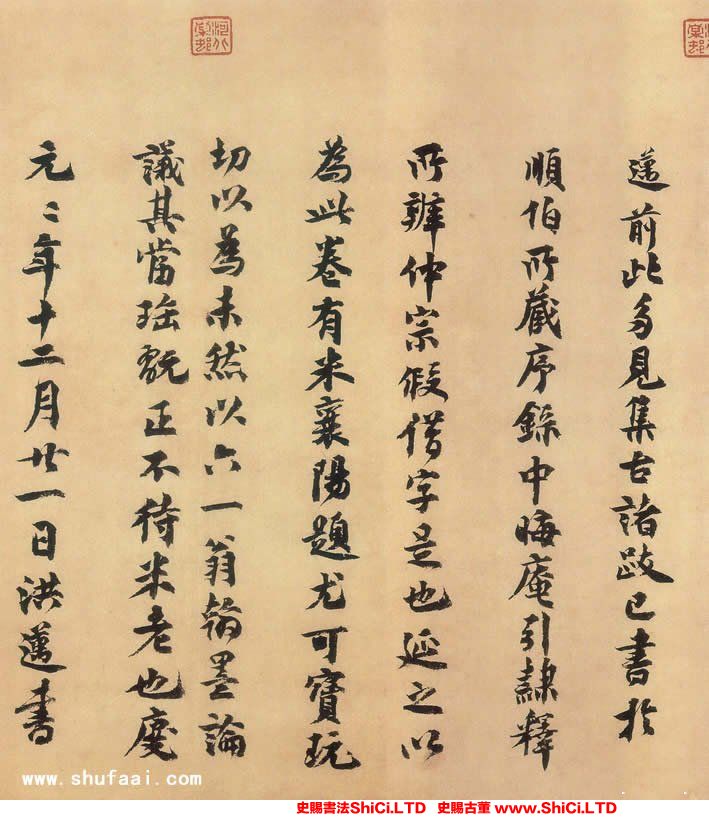 邁前此多見集古諸跋已書於
順伯所藏序錄中晦庵引隸釋
所辨仲宗假借字是也延之以
為此卷有米襄陽題尤可寶玩
切以為未然以六一翁翰墨論
議其當瑤翫正不待米老也慶
元二年十二月廿一日洪邁書
www.shufaai.com
史賜書法ShiCi.LTD 史賜古董 www.ShiCi.LTD